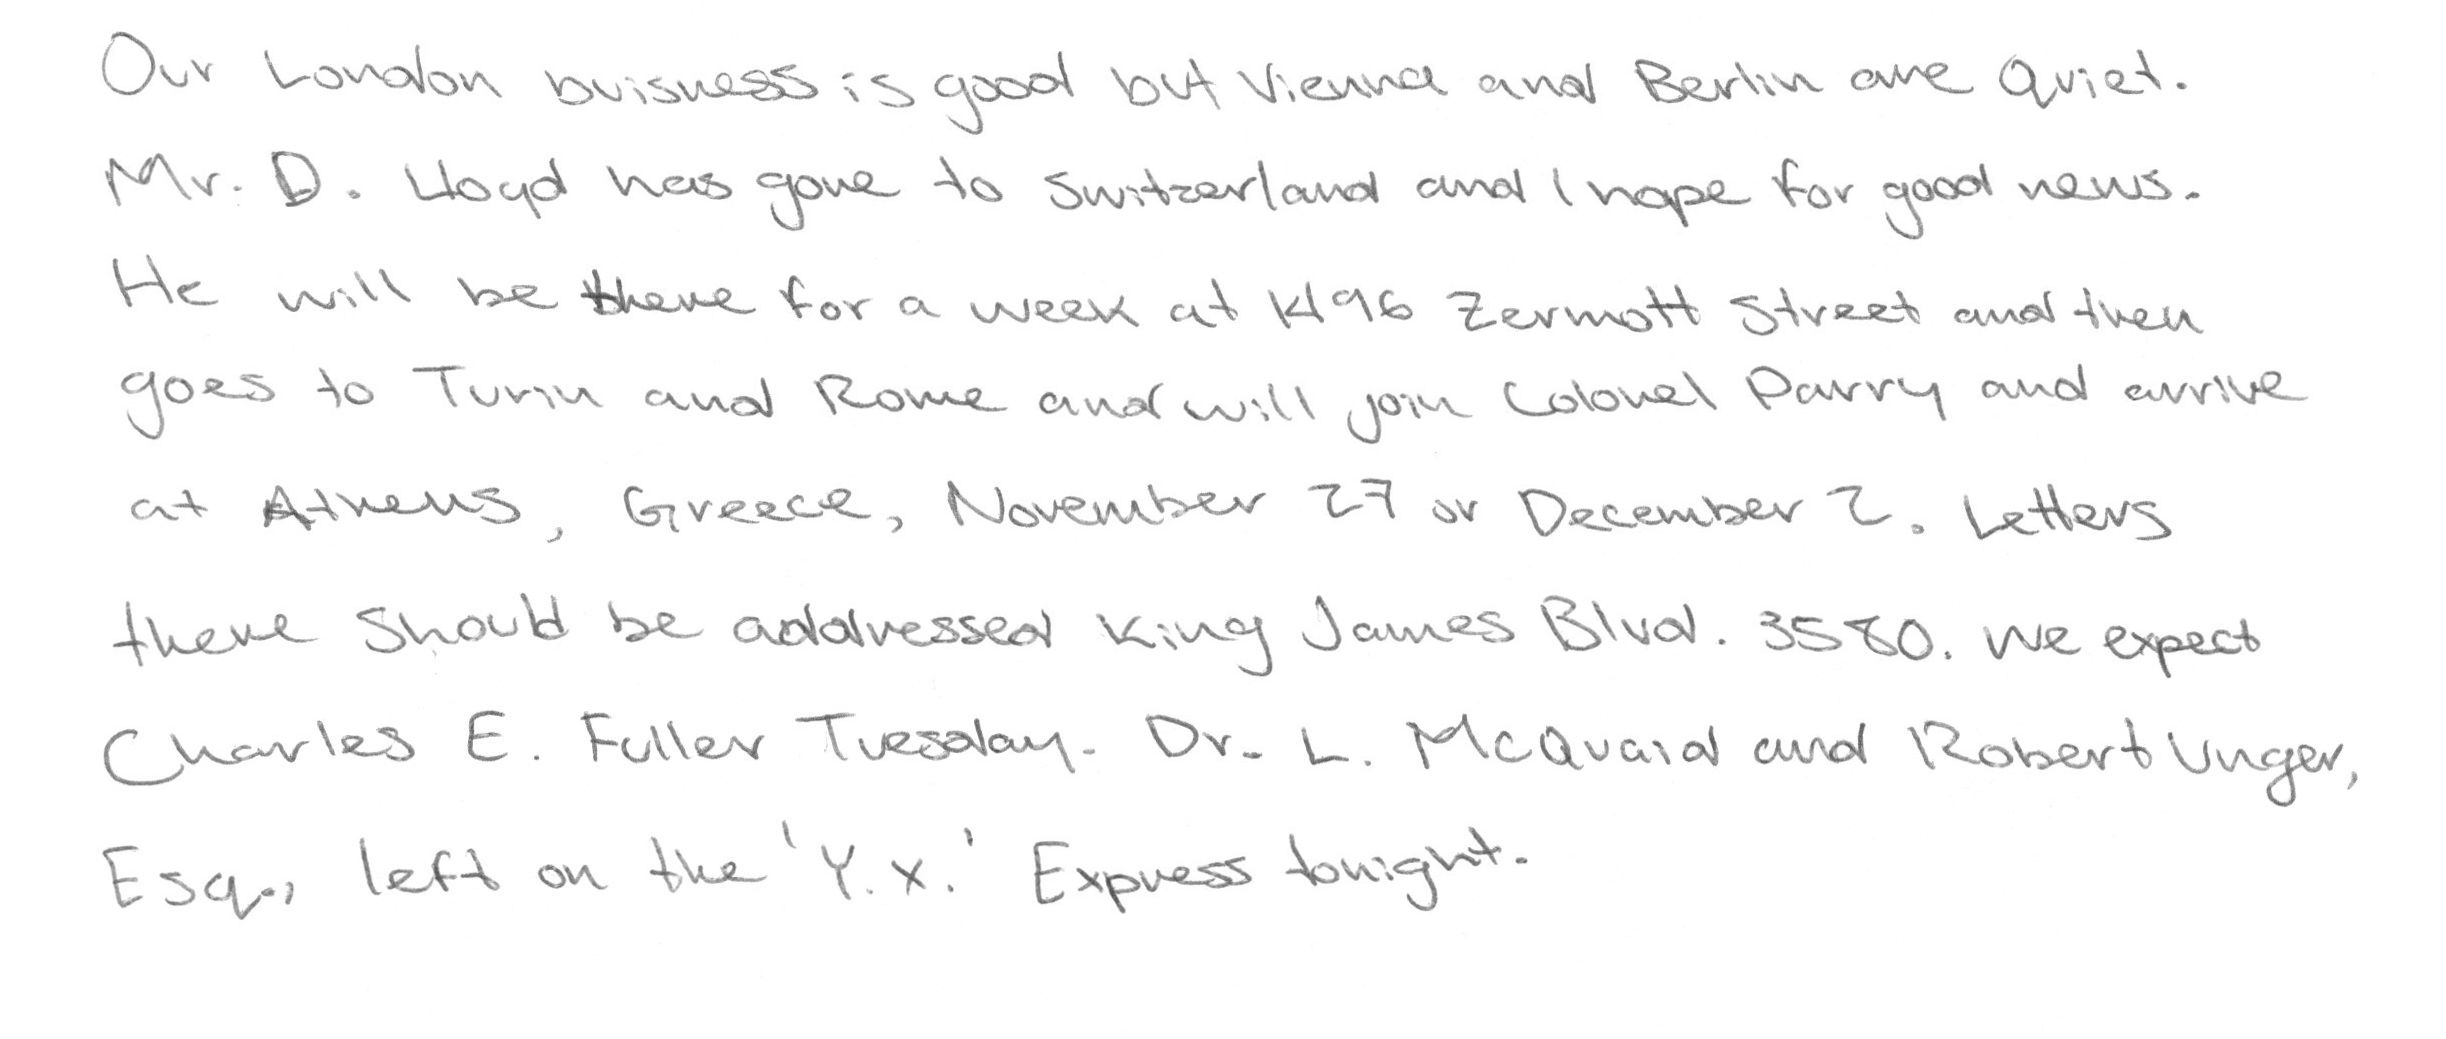 Our London buisness is good but Vienna and Berlin are Quiet.
Mr. D. Lloyd has gone to Switzerland and I hope for good news.
He will be there for a week at 1496 Zermott Street and then
goes to Turin and Rome and will join Colonel Parry and arrive
at Athens, Greece, November 27 or December 2. Letters
there should be addressed King James Blvd. 3580. We expect
Charles E. Fuller Tuesday. Dr. L. McQuaid and Robert Unger,
Esq., left on the 'Y.X.' Express tonight.